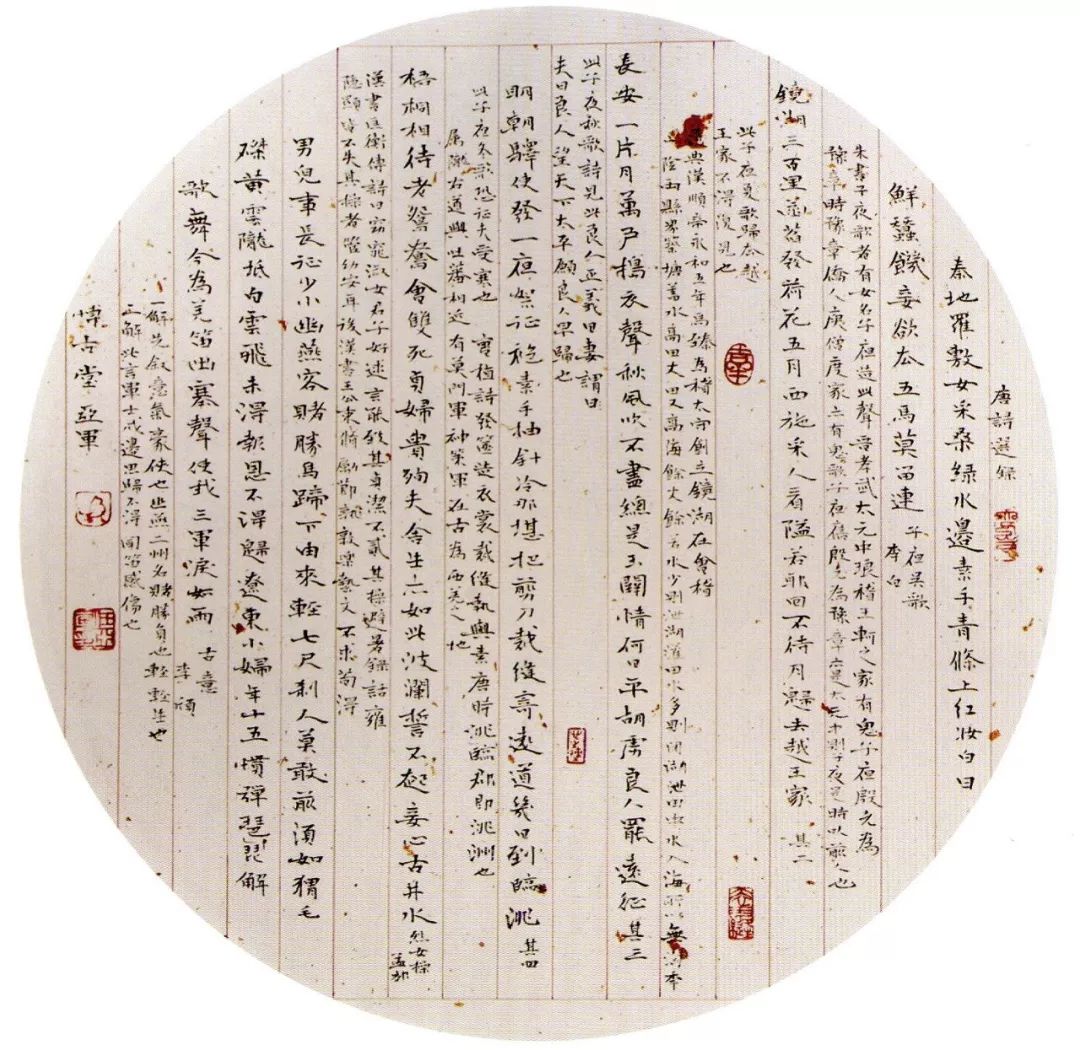 唐詩選錄
秦地羅敷女采桑綠水邊素手青條上紅妝白日
鮮蠶饑妾欲去五馬莫留連 子夜吳歌 李白
朱書子夜歌者有女名子夜造此聲晉孝武太元中琅稽王軻之家有鬼子夜殷允為
豫章時豫章僑人庾僧度家亦有鬼歌子夜殷允為豫章亦是太元中則子夜是時以前人也
鏡湖三百里菡萏發荷花五月西施采人看隘若耶回不待月歸去越王家 其二
此子夜夏歌歸太越
王家不得復見也
典漢順帝永和五年馬臻為稽太守創立鏡湖在會稽
陰兩縣界築塘蓄水高田丈田又高海餘丈餘若水少則泄湖灌田水多則閉湖泄田中水入海所以無
長安一片月萬戶搗衣聲秋風吹不盡總是玉關情何日平胡虜良人罷遠征 其三
此子夜秋歌詩見此良人正義曰妻謂曰
夫曰良人望天下太平願良人早歸也
明朝驛使發一夜絮征袍素手抽針冷那堪把剪刀裁縫寄遠道幾日到臨洮 其四
此子夜冬歌恐征夫受寒也 曹植詩發篋造衣裳裁縫紈與素唐時洮臨郡即洮洲也
屬隴右道與吐蕃相近有莫門軍神策軍在古為西羌之地
梧桐相待老鴛鴦會雙死貞婦貴殉夫舍生亦如此波瀾誓不起妾心古井水 烈女操 孟郊
漢書匡衡傳詩曰窈窕淑女君子好逑言能致其貞潔不貳其操避暑錄話雍
隱顯皆不失其操者管幼安耳後漢書王公束脩勵節敦樂藝文不求苟得
男兒事長征少小幽燕客賭勝馬蹄下由來輕七尺刹人莫敢前須如猬毛
磔黃雲隴坻白雲飛未得報恩不得歸遼東小婦年十五慣彈琵琶解
歌舞今為羌笛出塞聲使我三軍淚如雨 古意 李頎
一解先敘意氣豪俠也幽燕二州名賭勝負也輕輕生也
二解此言軍士戍邊思歸不得聞笛感傷也
博古堂亞軍